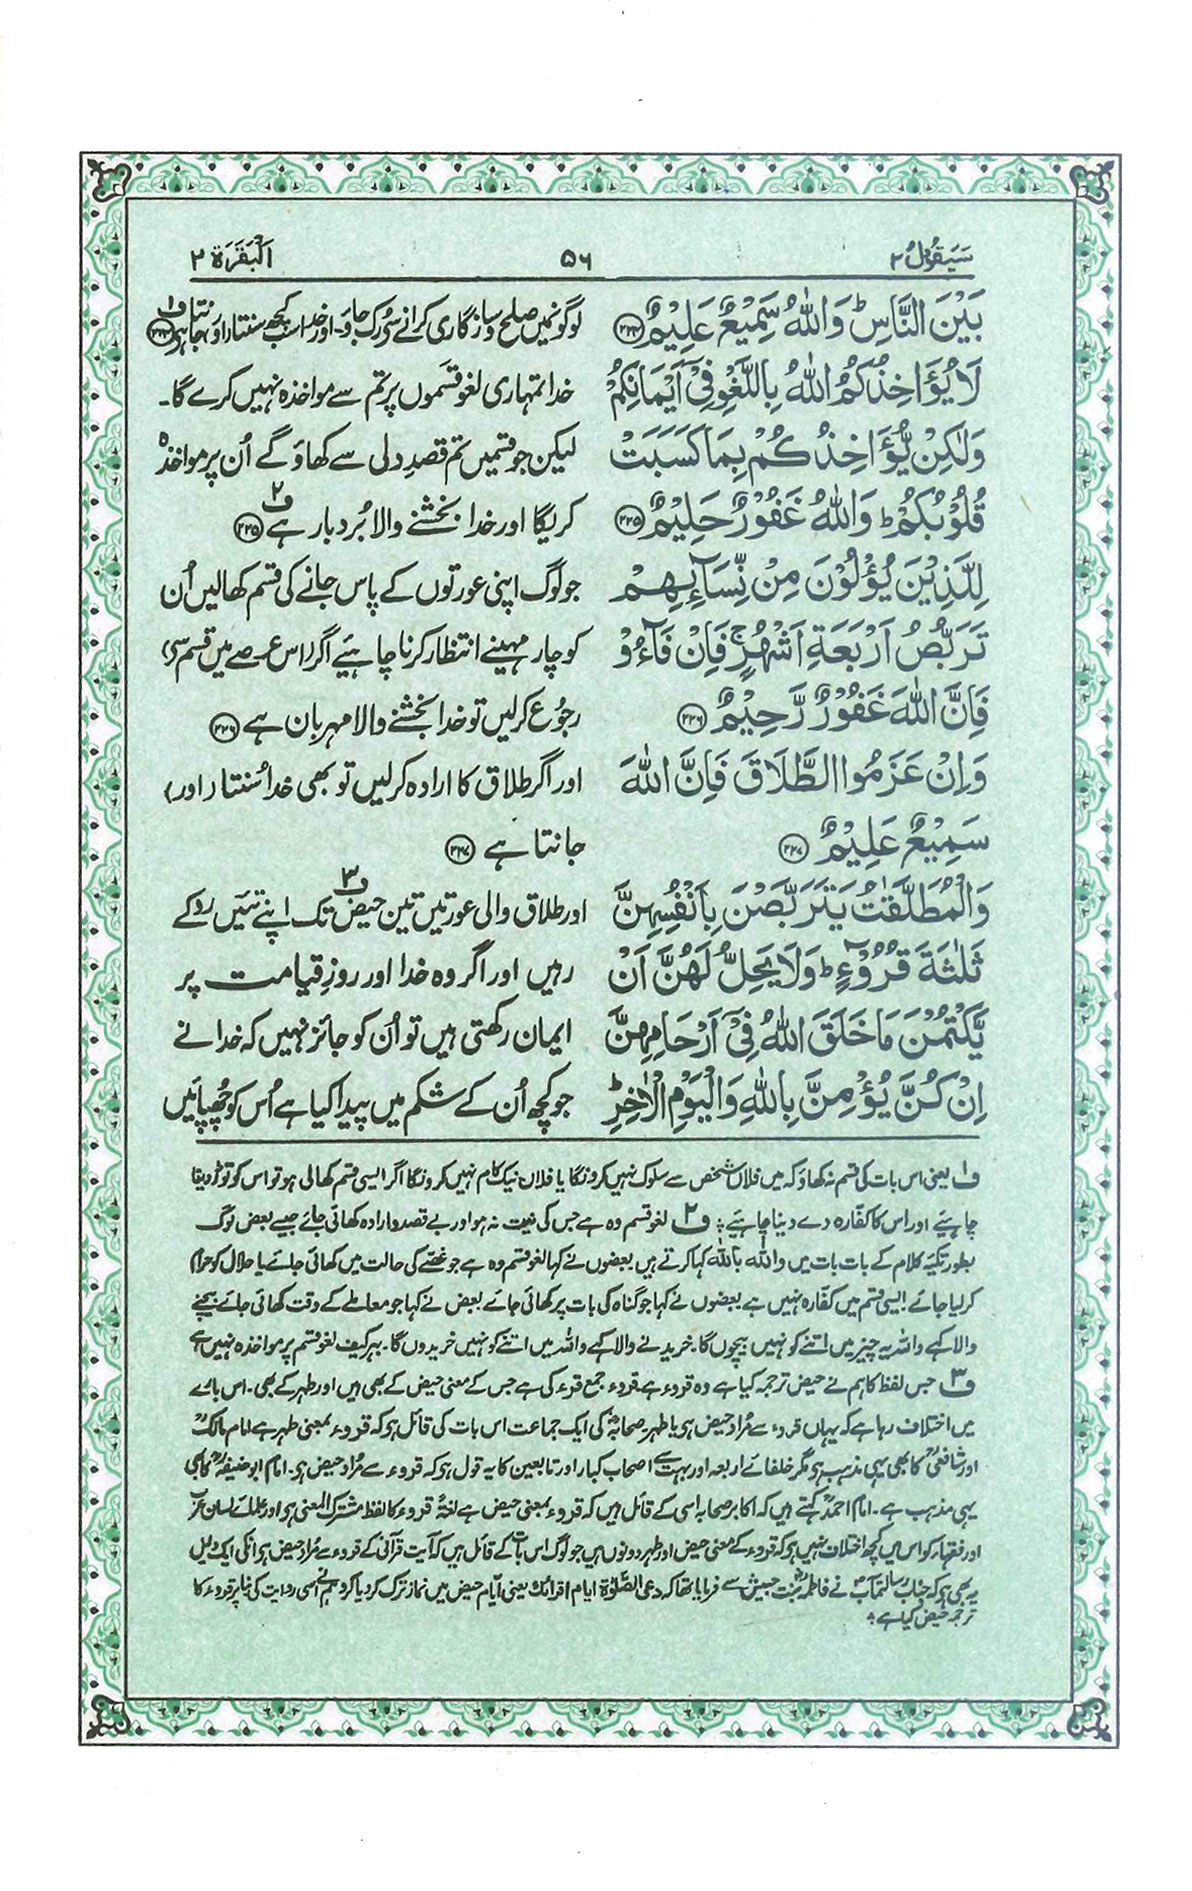 سَيَقُوْلُ ٢ ٥٦ اَلْبَقَرَة ٢
بَيْنَ النَّاسِ ؕ وَاللّٰهُ سَمِيْعٌ عَلِيْمٌ ﴿۲۲۴﴾
لَا يُؤَاخِذُكُمُ اللّٰهُ بِاللَّغْوِ فِيْۤ اَيْمَانِكُمْ
وَلٰكِنْ يُّؤَاخِذُكُمْ بِمَا كَسَبَتْ
قُلُوْبُكُمْ ؕ وَاللّٰهُ غَفُوْرٌ حَلِيْمٌ ﴿۲۲۵﴾
لِلَّذِيْنَ يُؤْلُوْنَ مِنْ نِّسَآئِهِمْ
تَرَبُّصُ اَرْبَعَةِ اَشْهُرٍ ۚ فَاِنْ فَآءُوْ
فَاِنَّ اللّٰهَ غَفُوْرٌ رَّحِيْمٌ ﴿۲۲۶﴾
وَاِنْ عَزَمُوا الطَّلَاقَ فَاِنَّ اللّٰهَ
سَمِيْعٌ عَلِيْمٌ ﴿۲۲۷﴾
وَالْمُطَلَّقٰتُ يَتَرَبَّصْنَ بِاَنْفُسِهِنَّ
ثَلٰثَةَ قُرُوْٓءٍ ؕ وَلَا يَحِلُّ لَهُنَّ اَنْ
يَّكْتُمْنَ مَا خَلَقَ اللّٰهُ فِيْۤ اَرْحَامِهِنَّ
اِنْ كُنَّ يُؤْمِنَّ بِاللّٰهِ وَالْيَوْمِ الْاٰخِرِ ؕ
لوگونمیں صلح و سازگاری کرانے سے رُک جاؤ۔ اور خدا سب کچھ سنتا اور جانتا ہے ف۱ ﴿۲۲۴﴾
خدا تمہاری لغو قسموں پر تم سے مواخذہ نہیں کرے گا۔
لیکن جو قسمیں تم قصدِ دلی سے کھاؤ گے اُن پر مواخذہ
کریگا اور خدا بخشنے والا بُردبار ہے ف۲ ﴿۲۲۵﴾
جو لوگ اپنی عورتوں کے پاس جانے کی قسم کھالیں اُن
کو چار مہینے انتظار کرنا چاہیئے اگر (اس عرصے میں قسم سے)
رجوع کرلیں تو خدا بخشنے والا مہربان ہے ﴿۲۲۶﴾
اور اگر طلاق کا ارادہ کرلیں تو بھی خدا سُنتا (اور)
جانتا ہے ﴿۲۲۷﴾
اور طلاق والی عورتیں تین حیض ف۳ تک اپنے تئیں روکے
رہیں اور اگر وہ خدا اور روزِ قیامت پر
ایمان رکھتی ہیں تو اُن کو جائز نہیں کہ خدا نے
جو کچھ اُن کے شکم میں پیدا کیا ہے اُس کو چھپائیں
ف۱ یعنی اس بات کی قسم نہ کھاؤ کہ میں فلاں شخص سے سلوک نہیں کرونگا یا فلاں نیک کام نہیں کرونگا اگر ایسی قسم کھالی ہو تو اس کو توڑ دینا
چاہیئے اور اس کا کفارہ دے دینا چاہیئے ف۲ لغو قسم وہ ہے جس کی نیت نہ ہو اور بے قصد و ارادہ کھائی جائے جیسے بعض لوگ
بطور تکیہ کلام کے بات بات میں واللّٰہ باللّٰہ کہا کرتے ہیں بعضوں نے کہا لغو قسم وہ ہے جو غصّے کی حالت میں کھائی جائے یا حلال کو حرام
کرلیا جائے ایسی قسم میں کفارہ نہیں ہے بعضوں نے کہا جو گناہ کی بات پر کھائی جائے بعض نے کہا جو معاملے کے وقت کھائی جائے بیچنے
والا کہے واللہ یہ چیز میں اتنے کو نہیں بیچوں گا۔ خریدنے والا کہے واللہ میں اتنے کو نہیں خریدوں گا۔ بہرکیف لغو قسم پر مواخذہ نہیں ہے
ف۳ جس لفظ کا ہم نے حیض ترجمہ کیا ہے وہ قروء ہے۔ قروء جمع قرء کی ہے جس کے معنی حیض کے بھی ہیں اور طہر کے بھی۔ اس بارے
میں اختلاف رہا ہے کہ یہاں قروء سے مُراد حیض ہی یا طہر۔ صحابہؓ کی ایک جماعت اس بات کی قائل ہو کہ قروء بمعنی طہر ہے امام مالکؒ
اور شافعیؒ کا بھی یہی مذہب ہو مگر خلفائے اربعہ اور بہت سے اصحاب کبار اور تابعین کا یہ قول ہو کہ قروء سے مُراد حیض ہی۔ امام ابو حنیفہؒ کا بھی
یہی مذہب ہے۔ امام احمدؒ کہتے ہیں کہ اکابر صحابہ اسی کے قائل ہیں کہ قروء بمعنی حیض ہے لغۃً قروء کا لفظ مشترک المعنی ہو اور علمائے لسان عرب
اور فقہاء کو اس میں کچھ اختلاف نہیں ہو کہ قروء کے معنی حیض اور طہر دونوں ہیں جو لوگ اس بات کے قائل ہیں کہ آیت قرآنی کے قروء سے مُراد حیض ہو انکی ایک دلیل
یہ بھی ہو کہ جناب رسالتمآبؐ نے فاطمہؓ بنت حبیش سے فرمایا تھا کہ دعی الصّلٰوۃ ایام اقرائك یعنی ایّام حیض میں نماز ترک کردیا کرو ہم نے اسی روایت کی بنا پر قروء کا
ترجمہ حیض کیا ہے